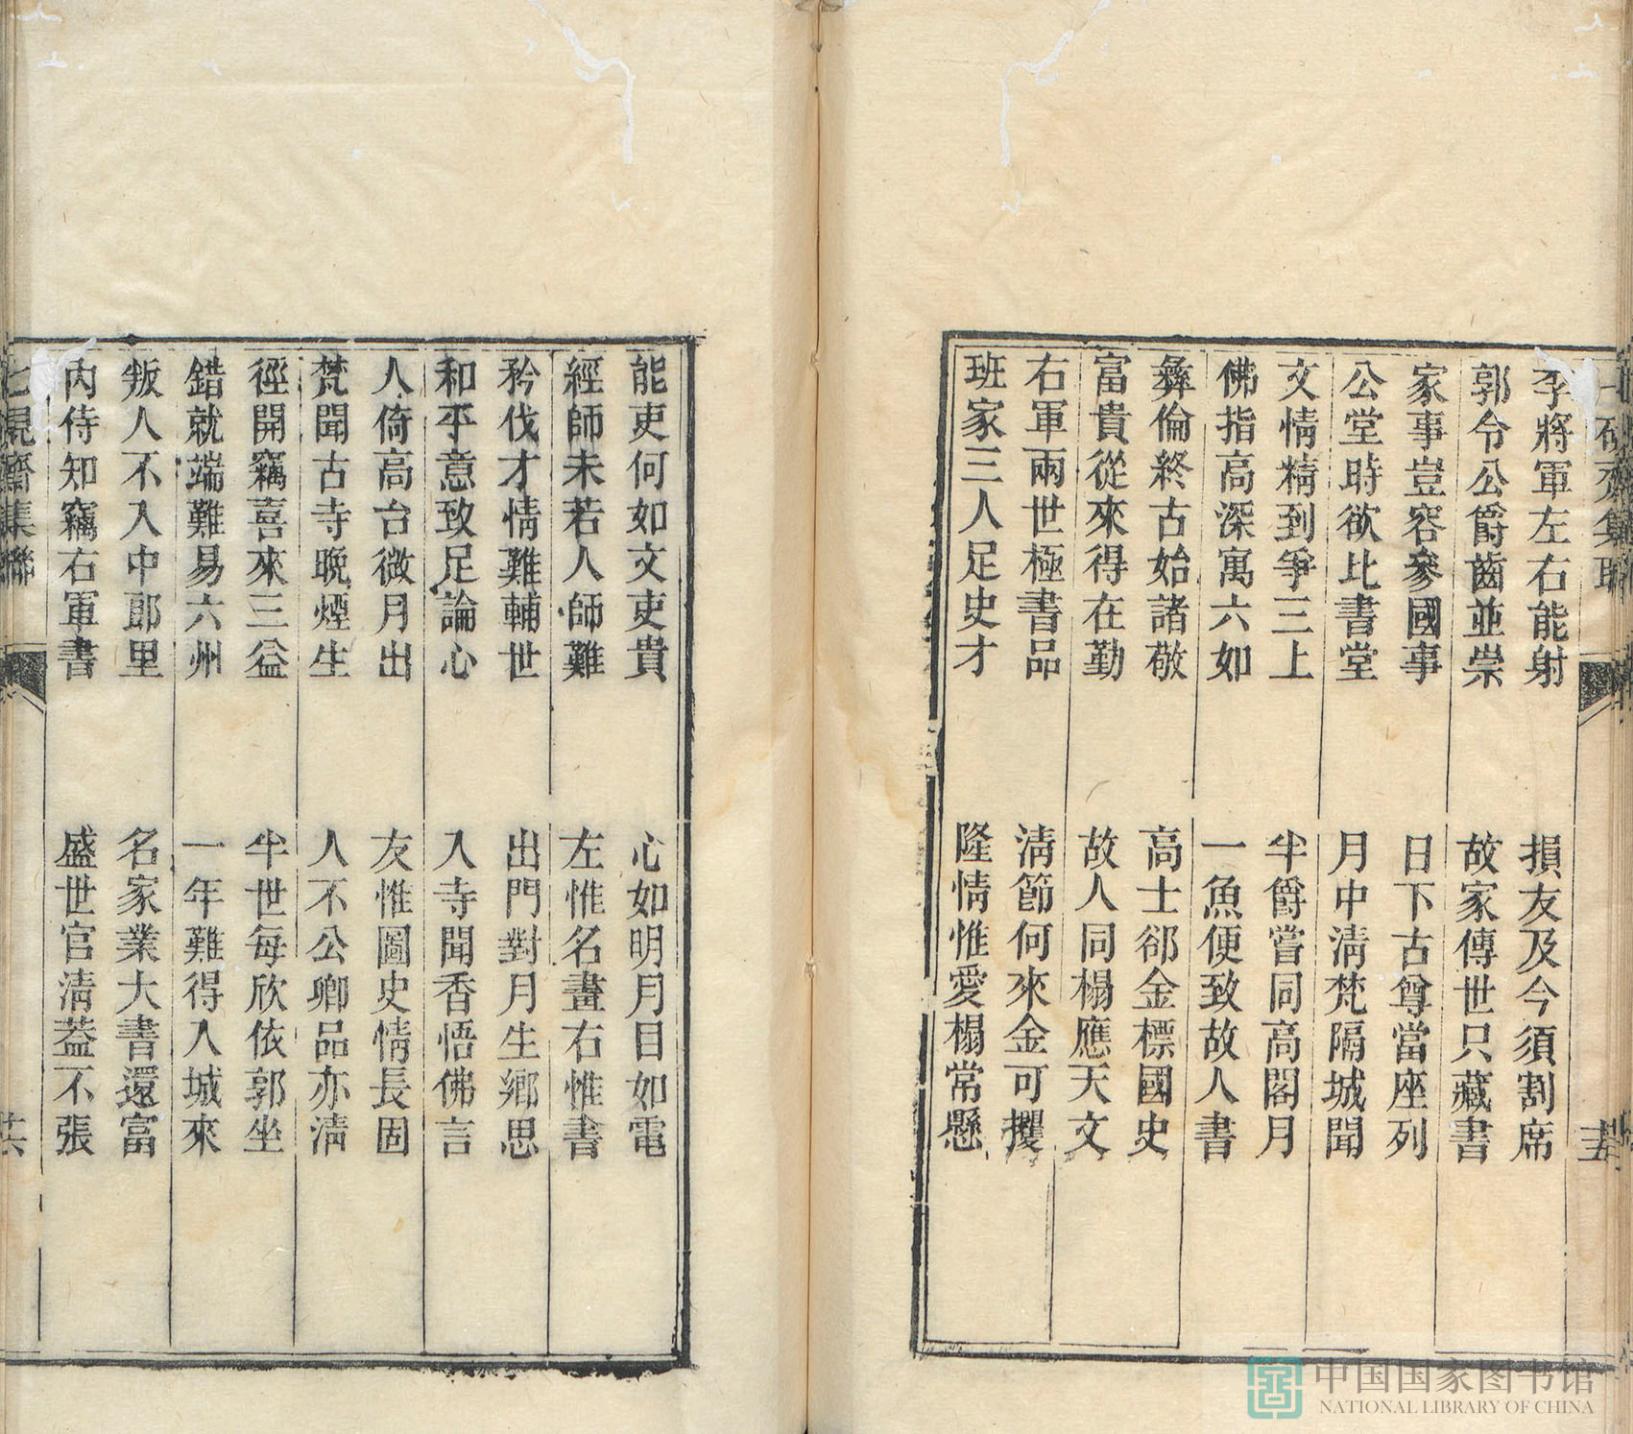 李將軍左右能射　損友及今須割席
郭令公爵齒並崇　故家傳世只藏書
家事豈容參國事　日下古尊當座列
公堂時欲比書堂　月中淸梵隔城聞
文情精到爭三上　半爵嘗同高閣月
佛指高深寓六如　一魚便致故人書
彝倫終古始諸敬　高士郤金標國史
富貴從來得在勤　故人同榻應天文
右軍兩世極書品　淸節何來金可攫
班家三人足史才　隆情惟愛榻常懸
能吏何如文吏貴　心如明月目如電
經師未若人師難　左惟名畫右惟書
矜伐才情難輔世　出門對月生鄉思
和平意致足論心　入寺聞香悟佛言
人倚高台微月出　友惟圖史情長固
梵聞古寺晚煙生　人不公卿品亦淸
徑開竊喜來三益　半世每欣依郭坐
錯就端難易六州　一年難得入城來
叛人不入中郎里　名家業大書還富
內侍知竊右軍書　盛世官淸葢不張
齋集聯
中国国家图书馆
NATIONAL LIBRARY OF CHINA